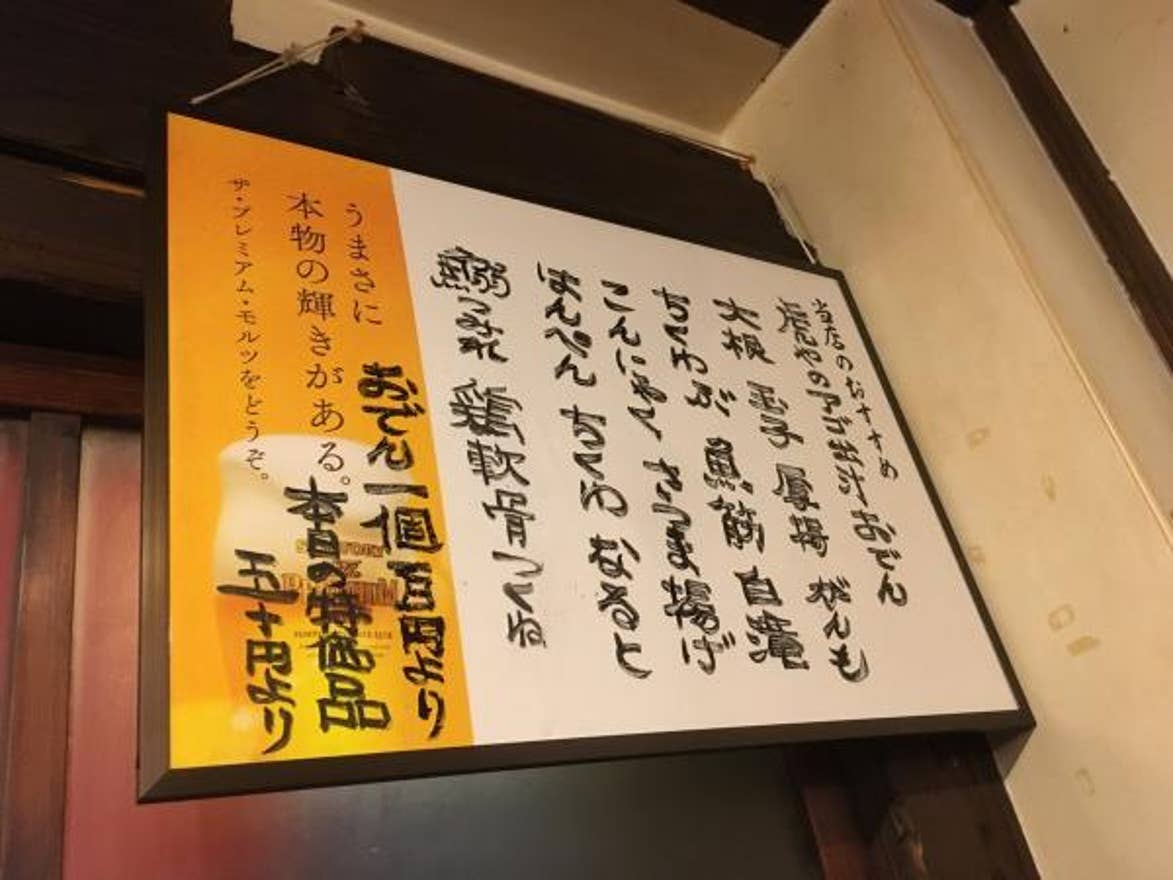 当店のおすすめ
おでん
大根 玉子 厚揚
ちくわぶ 魚筋 白滝
こんにゃく さつま揚げ
はんぺん ちくわ なると
鰯つみれ 鶏軟骨つくね
おでん一個百円より
本日の特価品
五十円より
うまさに
本物の輝きがある。
ザ・プレミアム・モルツをどうぞ。